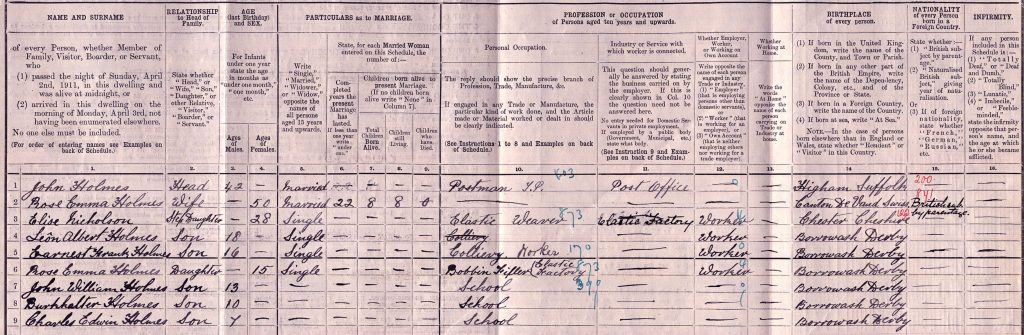 NAME AND SURNAME
of every Person, whether Member of Family, Visitor, Boarder, or Servant, who
(1) passed the night of Sunday, April 2nd, 1911, in this dwelling and was alive at midnight, or
(2) arrived in this dwelling on the morning of Monday, April 3rd, not having been enumerated elsewhere.
No one else must be included.
(For order of entering names see Examples on back of Schedule.)
RELATIONSHIP to Head of Family.
State whether "Head," or "Wife," "Son," "Daughter," or other Relative, "Visitor," "Boarder," or "Servant."
AGE (last Birthday) and SEX.
For Infants under one year state the age in months as "under one month," "one month," etc.
Ages of Males.
Ages of Females.
PARTICULARS as to MARRIAGE.
Write "Single," "Married," "Widower," or "Widow," opposite the names of all persons aged 15 years and upwards.
State, for each Married Woman entered on this Schedule, the number of:—
Completed years the present Marriage has lasted. If less than one year write "under one."
Children born alive to present Marriage. (If no children born alive write "None" in Column 7).
Total Children Born Alive.
Children still Living.
Children who have Died.
PROFESSION or OCCUPATION
of Persons aged ten years and upwards.
Personal Occupation.
The reply should show the precise branch of Profession, Trade, Manufacture, &c.
If engaged in any Trade or Manufacture, the particular kind of work done, and the Article made or Material worked or dealt in should be clearly indicated.
(See Instructions 1 to 8 and Examples on back of Schedule.)
Industry or Service with which worker is connected.
This question should generally be answered by stating the business carried on by the employer. If this is clearly shown in Col. 10 the question need not be answered here.
No entry needed for Domestic Servants in private employment. If employed by a public body (Government, Municipal, etc.) state what body.
(See Instruction 9 and Examples on back of Schedule.)
Whether Employer, Worker, or Working on Own Account
Write opposite the name of each person engaged in any Trade or Industry,
(1) "Employer" (that is employing persons other than domestic servants),
or (2) "Worker" (that is working for an employer),
or (3) "Own Account" (that is neither employing others nor working for a trade employer).
Whether Working at Home.
Write the words "At Home" opposite the name of each person carrying on Trade or Industry at home.
BIRTHPLACE
of every person.
(1) If born in the United Kingdom, write the name of the County, and Town or Parish.
(2) If born in any other part of the British Empire, write the name of the Dependency, Colony, etc., and of the Province or State.
(3) If born in a Foreign Country, write the name of the Country.
(4) If born at sea, write "At Sea."
NOTE.—In the case of persons born elsewhere than in England or Wales, state whether "Resident" or "Visitor" in this Country.
NATIONALITY of every Person born in a Foreign Country.
State whether:—
(1) "British subject by parentage."
(2) "Naturalised British subject," giving year of naturalisation.
Or
(3) If of foreign nationality, state whether "French," "German," "Russian," etc.
INFIRMITY.
If any person included in this Schedule is:—
(1) "Totally Deaf" or "Deaf and Dumb,"
(2) "Totally Blind,"
(3) "Lunatic,"
(4) "Imbecile," or "Feeble-minded,"
state the infirmity opposite that person's name, and the age at which he or she became afflicted.
1. 2. 3. 4. 5. 6. 7. 8. 9. 10. 11. 12. 13. 14. 15. 16.
1 John Holmes Head 42 — Married — — — — Postman T.P. 803 Post Office — 0 — Higham Suffolk 200
2 Rose Emma Holmes Wife — 50 Married 22 8 8 0 — — — — Canton De Vaud Swiss 841 British sub by parentage
3 Elise Nicholson Step Daughter — 28 Single — — — — Elastic Weaver 873 Elastic Factory Worker — Chester Cheshire
4 Leôn Albert Holmes Son 18 — Single — — — — Colliery — Worker — Borrowash Derby
5 Earnest Frank Holmes Son 16 — Single — — — — Colliery Worker 170 — Worker — Borrowash Derby
6 Rose Emma Holmes Daughter — 15 Single — — — — Bobbin Filler (Elastic Factory 873 Worker — Borrowash Derby
7 John William Holmes Son 13 — — School 390 — — Borrowash Derby
8 Burkhalter Holmes Son 10 — — School — — Borrowash Derby
9 Charles Edwin Holmes Son 7 — — School — — Borrowash Derby